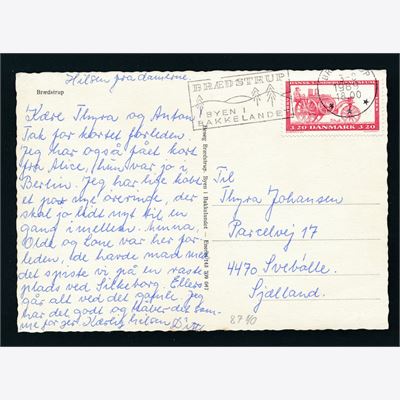 Hilsen fra damerne.
Brædstrup
Kære Thyra og Anton!
Tak for kortet forleden.
Jeg har også fået kort
fra Alice, hun var jo i
Berlin. Jeg har lige købt
et par nye øreringe, der
skal jo lidt nyt til en
gang i mellem. hinna,
Olde og Lone var her for-
leden, de havde mad med
det spiste vi på en raste
plads ved Silkeborg. Ellers
går alt ved det gamle. Jeg
har det godt og håber det sam-
me for jer. Kærlig hilsen
BRÆDSTRUP
BYEN I
BAKKELANDET
18.00
3.20 DANMARK 3.20
Brædstrup. Byen i Bakkelandet
Til
Thyra Johansen
Parcelvej 17
4470 Svebølle.
Sjælland.
8740